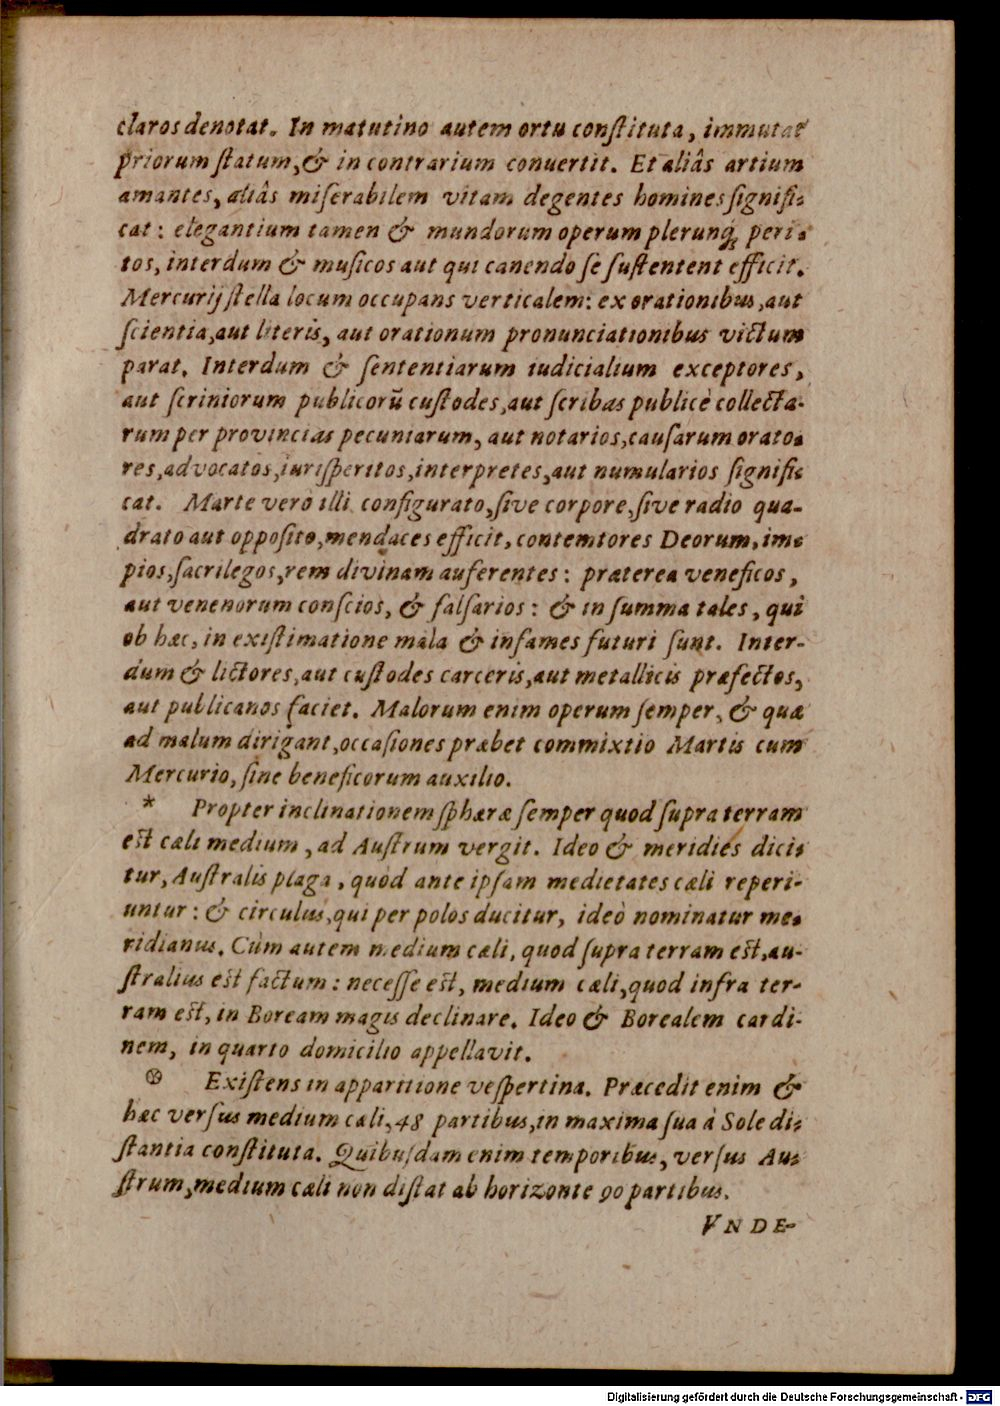 claros denotat. In matutino autem ortu conſtituta, immutat
priorum ſtatum, & in contrarium conuertit. Et aliâs artium
amantes, aliâs miſerabilem vitam degentes homines ſignifi-
cat: elegantium tamen & mundorum operum plerunq; peri-
tos, interdum & muſicos aut qui canendo ſe ſuſtentent efficit.
Mercurij ſtella locum occupans verticalem: ex orationibus, aut
ſcientia, aut literis, aut orationum pronunciationibus victum
parat. Interdum & ſententiarum iudicialium exceptores,
aut ſcriniorum publicorū cuſtodes, aut ſcribas publicè collecta-
rum per provincias pecuniarum, aut notarios, cauſarum orato-
res, advocatos, iuriſperitos, interpretes, aut numularios ſignifi-
cat. Marte verò illi configurato, ſive corpore, ſive radio qua-
drato aut oppoſito, mendaces efficit, contemtores Deorum, im-
pios, ſacrilegos, rem divinam auferentes: præterea veneficos,
aut venenorum conſcios, & falſarios: & in ſumma tales, qui
ob hæc, in exiſtimatione mala & infames futuri ſunt. Inter-
dum & lictores, aut cuſtodes carceris, aut metallicis præfectos,
aut publicanos faciet. Malorum enim operum ſemper, & quæ
ad malum dirigant, occaſiones præbet commixtio Martis cum
Mercurio, ſine beneficorum auxilio.
* Propter inclinationem ſphæræ ſemper quod ſupra terram
eſt cæli medium, ad Auſtrum vergit. Ideo & meridies dici-
tur, Auſtralis plaga, quòd ante ipſam medietates cæli reperi-
untur: & circulus, qui per polos ducitur, ideò nominatur me-
ridianus. Cùm autem medium cæli, quod ſupra terram eſt, au-
ſtralius eſt factum: neceſſe eſt, medium cæli, quod infra ter-
ram eſt, in Boream magis declinare. Ideo & Borealem cardi-
nem, in quarto domicilio appellavit.
⊗ Exiſtens in apparitione veſpertina. Præcedit enim &
hæc verſus medium cæli, 48 partibus, in maxima ſua à Sole di-
ſtantia conſtituta. Quibuſdam enim temporibus, verſus Au-
ſtrum, medium cæli non diſtat ab horizonte 90 partibus.
VNDE-
Digitalisierung gefördert durch die Deutsche Forschungsgemeinschaft - DFG